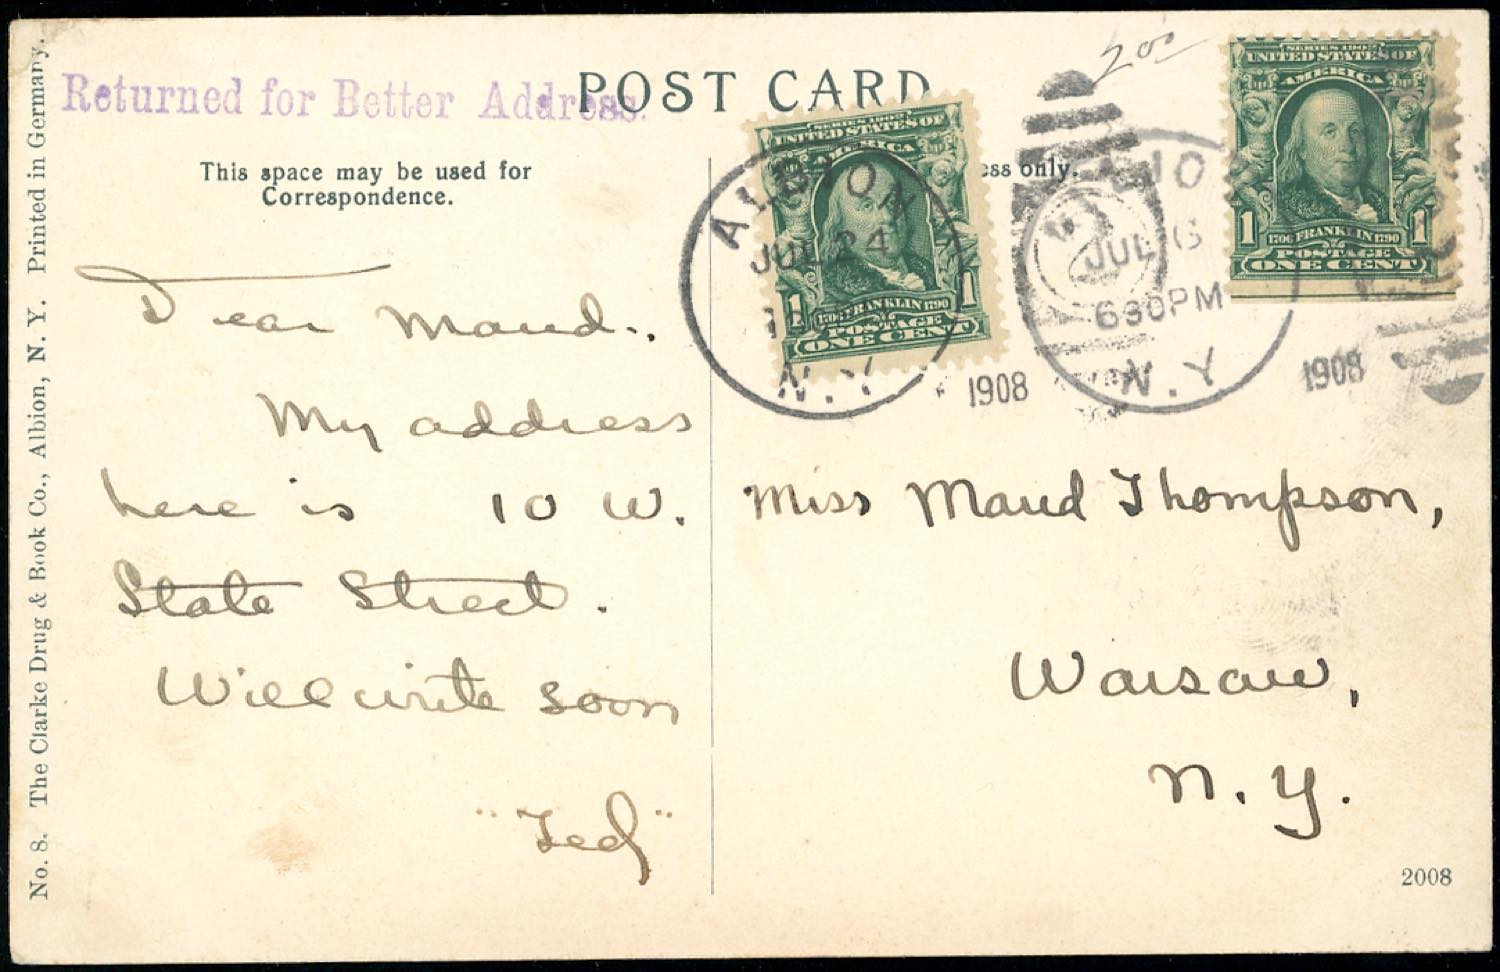 No. 8. The Clarke Drug & Book Co., Albion, N. Y. Printed in Germany.
Returned for Better Address.
POST CARD
200
This space may be used for
Correspondence.
ess only.
Dear Maud.,
My address
here is 10 W.
State Street.
Will write soon
"Ted"
SERIES 1902
UNITED STATES OF
AMERICA
1 1
1706 FRANKLIN 1790
POSTAGE
ONE CENT
ALBION
JUL 24
N.Y
1908
2
JUL
630PM
N.Y
1908
SERIES 1902
UNITED STATES OF
AMERICA
1 1
1706 FRANKLIN 1790
POSTAGE
ONE CENT
Miss Maud Thompson,
Warsaw,
N. Y.
2008